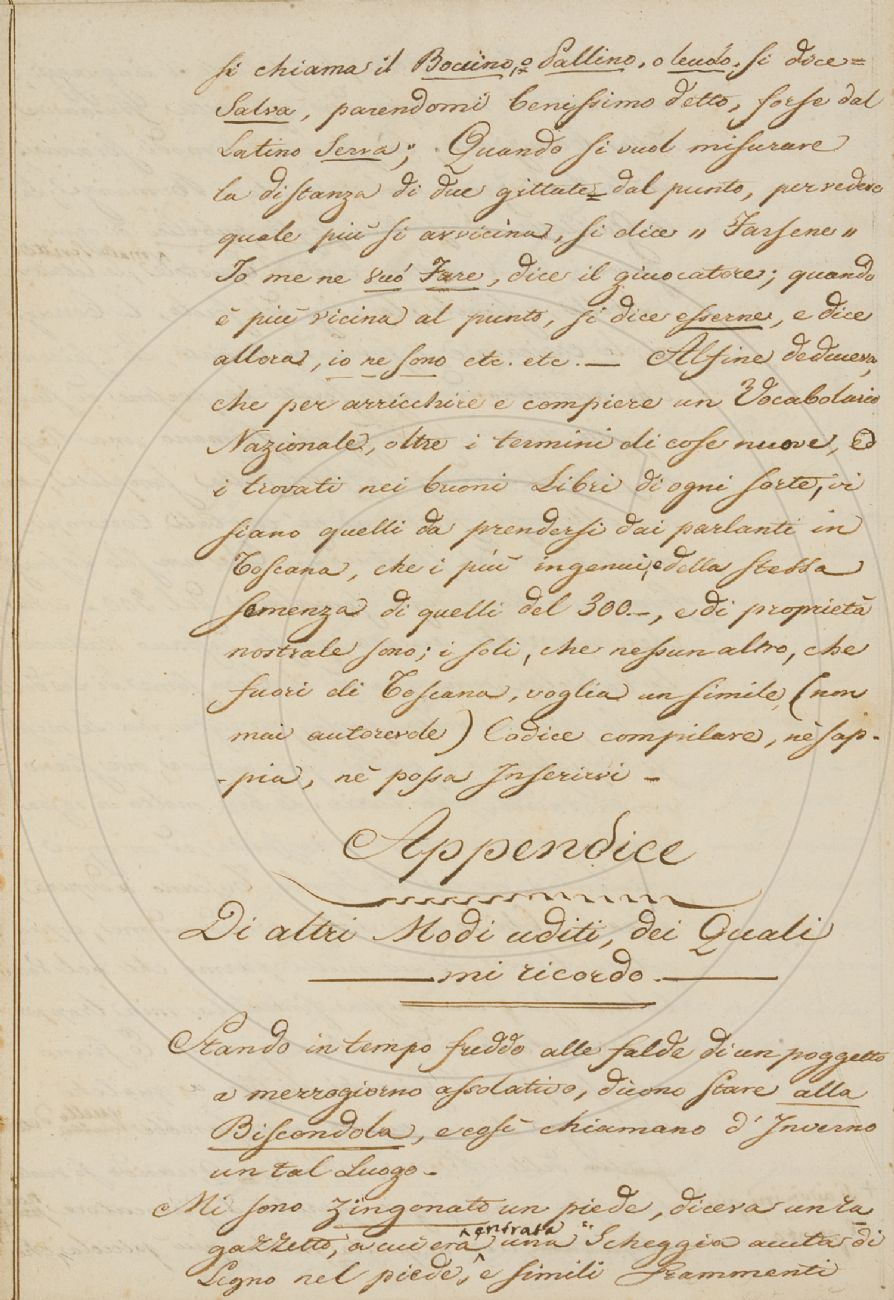 si chiama il Boccino, o Pallino, o leudo, si dice=
Salva, parendomi benissimo detto, forse dal
Latino Serva; Quando si vuol misurare
la distanza di due gittate dal punto, per vedere
quale più si avvicina, si dice „ Farsene „
Io me ne vuò Fare, dice il giuocatore; quando
è più vicina al punto, si dice esserne, e dice
allora, io ne sono etc. etc. — Alfine deduceva,
che per arricchire e compiere un Vocabolario
Nazionale, oltre i termini di cose nuove, ed
i trovati nei buoni Libri di ogni sorte, vi
siano quelli da prendersi dai parlanti in
Toscana, che i più ingenui, e della stessa
semenza di quelli del 300—, e di proprietà
nostrale sono; i soli, che nessun altro, che
fuori di Toscana, voglia un simile, (non
mai autorevole) Codice compilare, nè sap-
-pia, nè possa Inserirvi —
Appendice
Di altri Modi uditi, dei Quali
mi ricordo.
Stando in tempo freddo alle falde di un poggetto
a mezzogiorno assolativo, dicono stare alla
Biscondola, e così chiamano d'Inverno
un tal Luogo —
Mi sono zingonato un piede, diceva un ra
gazzetto, a cui era entrata una Scheggia acuta di
Legno nel piede, e simili Frammenti